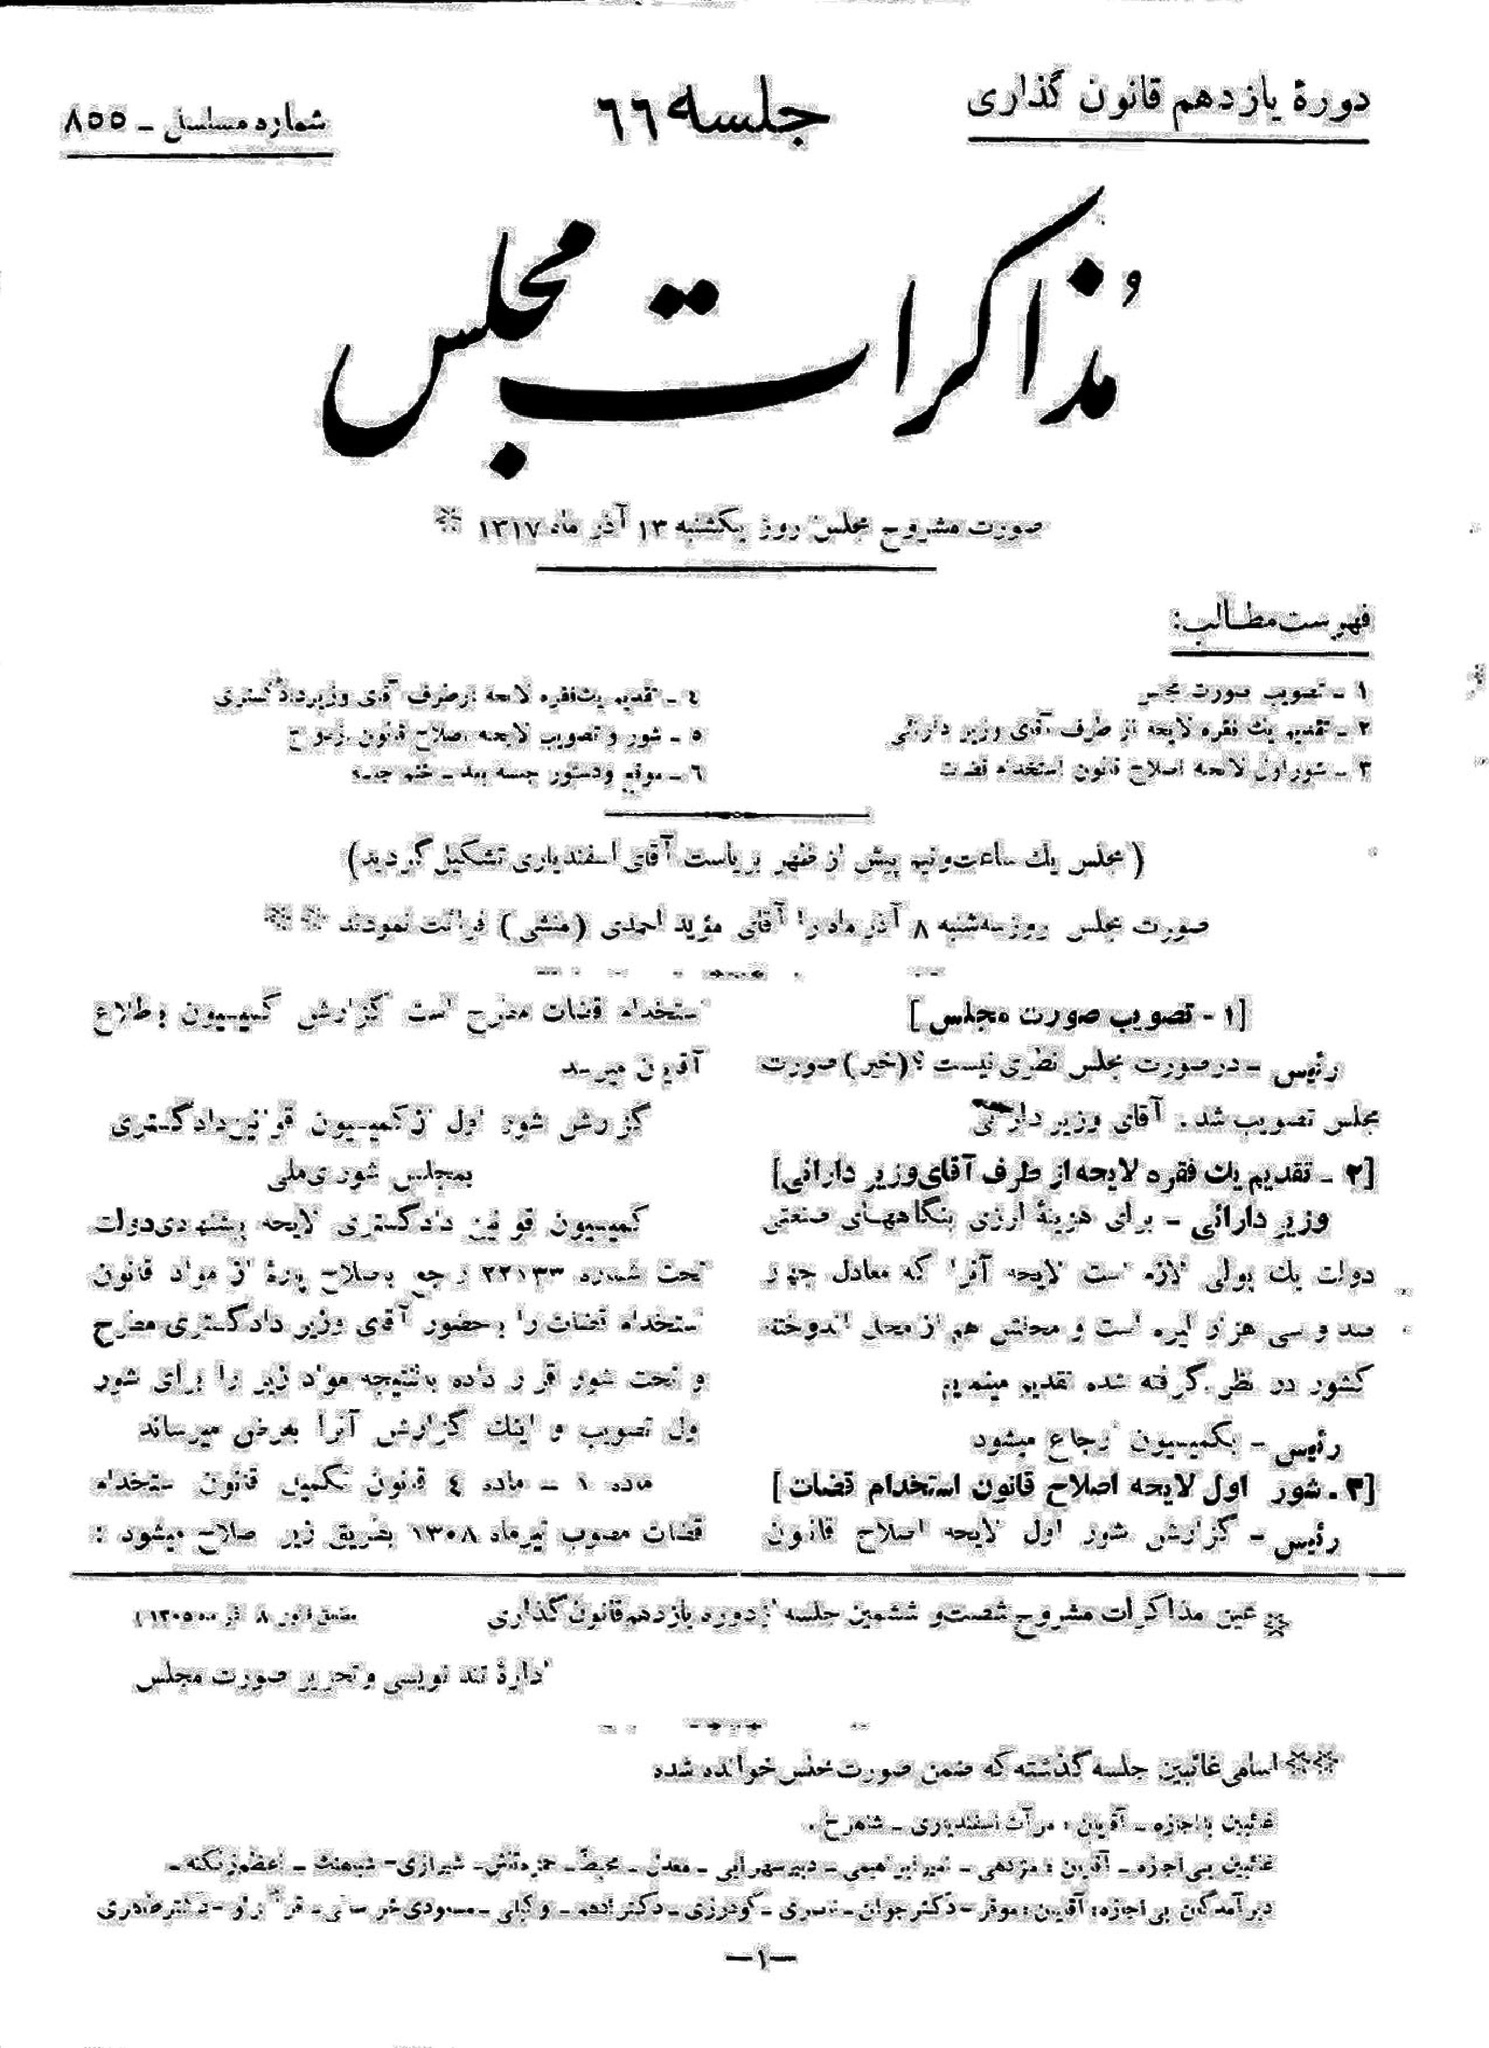 دورهٔ یازدهم قانون گذاری
جلسه ٦٦
شماره مسلسل ـ ٨٥٥
مُذاکرات مجلس
صورت مشروح مجلس روز یکشنبه ١٣ آذر ماه ١٣١٧ *
فهرست مطالب:
١ ـ تصویب صورت مجلس
٢ ـ تقدیم یك فقره لایحه از طرف آقای وزیر دارائی
٣ ـ شور اول لایحه اصلاح قانون استخدام قضات
٤ ـ تقدیم یك فقره لایحه از طرف آقای وزیر دادگستری
٥ ـ شور و تصویب لایحه اصلاح قانون ازدواج
٦ ـ موقع و دستور جلسه بعد ـ ختم جلسه
( مجلس یك ساعت و نیم پیش از ظهر بریاست آقای اسفندیاری تشکیل گردید)
صورت مجلس روز سه‌شنبه ٨ آذر ماه را آقای مؤید احمدی (منشی) قرائت نمودند **
[١ ـ تصویب صورت مجلس]
رئیس ـ در صورت مجلس نظری نیست؟ (خیر) صورت
مجلس تصویب شد. آقای وزیر دارائی
[٢ ـ تقدیم یك فقره لایحه از طرف آقای وزیر دارائی]
وزیر دارائی ـ برای هزینهٔ ارزی بنگاههای صنعتی
دولت یك پولی لازم است لایحه آنرا که معادل چهار
صد و سی هزار لیره است و محلش هم از محل اندوخته
کشور در نظر گرفته شده تقدیم مینمایم
رئیس ـ بکمیسیون ارجاع میشود
[٣ ـ شور اول لایحه اصلاح قانون استخدام قضات]
رئیس ـ گزارش شور اول لایحه اصلاح قانون
استخدام قضات مطرح است گزارش کمیسیون باطلاع
آقایان میرسد
گزارش شور اول از کمیسیون قوانین دادگستری
بمجلس شورای ملی
کمیسیون قوانین دادگستری لایحه پیشنهادی دولت
تحت شماره ٢٢١٣٣ راجع باصلاح پارهٔ از مواد قانون
استخدام قضات را با حضور آقای وزیر دادگستری مطرح
و تحت شور قرار داده بالنتیجه مواد زیر را برای شور
اول تصویب و اینك گزارش آنرا بعرض میرساند
ماده ١ ـ ماده ٤ قانون تکمیل قانون استخدام
قضات مصوب تیرماه ١٣٠٨ بطریق زیر اصلاح میشود :
* عین مذاکرات مشروح شصت و ششمین جلسه از دوره یازدهم قانون گذاری
اداره تند نویسی و تحریر صورت مجلس
** اسامی غائبین جلسه گذشته که ضمن صورت مجلس خوانده شده
غائبین با اجازه ـ آقایان : مرآت اسفندیاری ـ شاهرخ.
غائبین بی اجازه ـ آقایان : مژدهی ـ امیر ابراهیمی ـ دبیر سهرابی ـ معدل ـ محیط ـ حمزه تاش ـ شیرازی ـ شباهنك ـ اعظم زنگنه ـ
دیر آمدگان بی اجازه: آقایان: موقر ـ دکتر جوان ـ ناصری ـ گودرزی ـ دکتر ادهم ـ وکیلی ـ مسعودی خراسانی ـ ـ دکتر طاهری
ـ١ـ